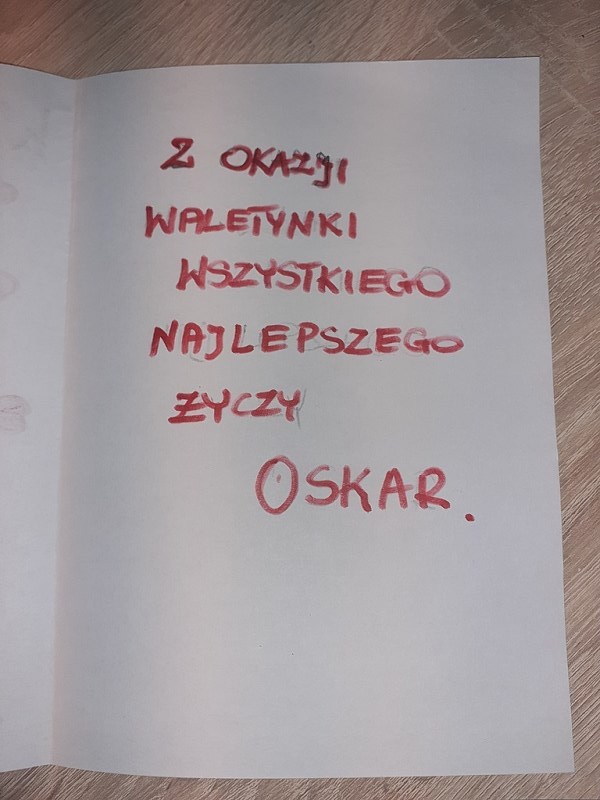 Z OKAZJI
WALETYNKI
WSZYSTKIEGO
NAJLEPSZEGO
ZYCZY
OSKAR.